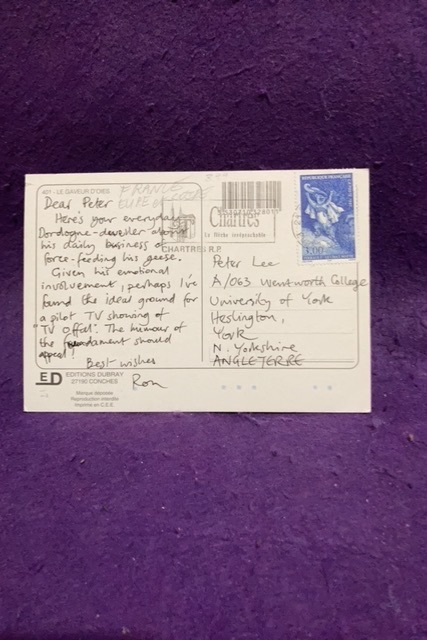 401 - LE GAVEUR D'OIES
FRANCE
EURE
Dear Peter
Here's your everyday
Dordogne-dweller about
his daily business of
force-feeding his geese.
Given his emotional
involvement, perhaps I've
found the ideal ground for
a pilot TV showing of
"TV Offal". The humour of
the fundament should
appeal!
Best wishes
Ron
ED EDITIONS DUBRAY
27190 CONCHES
Marque déposée
Reproduction interdite
Imprimé en C.E.E.
Chartres
la flèche irréprochable
CHARTRES R.P.
REPUBLIQUE FRANÇAISE
3,00
Peter Lee
A/063 Wentworth College
University of York
Heslington,
York
N. Yorkshire
ANGLETERRE